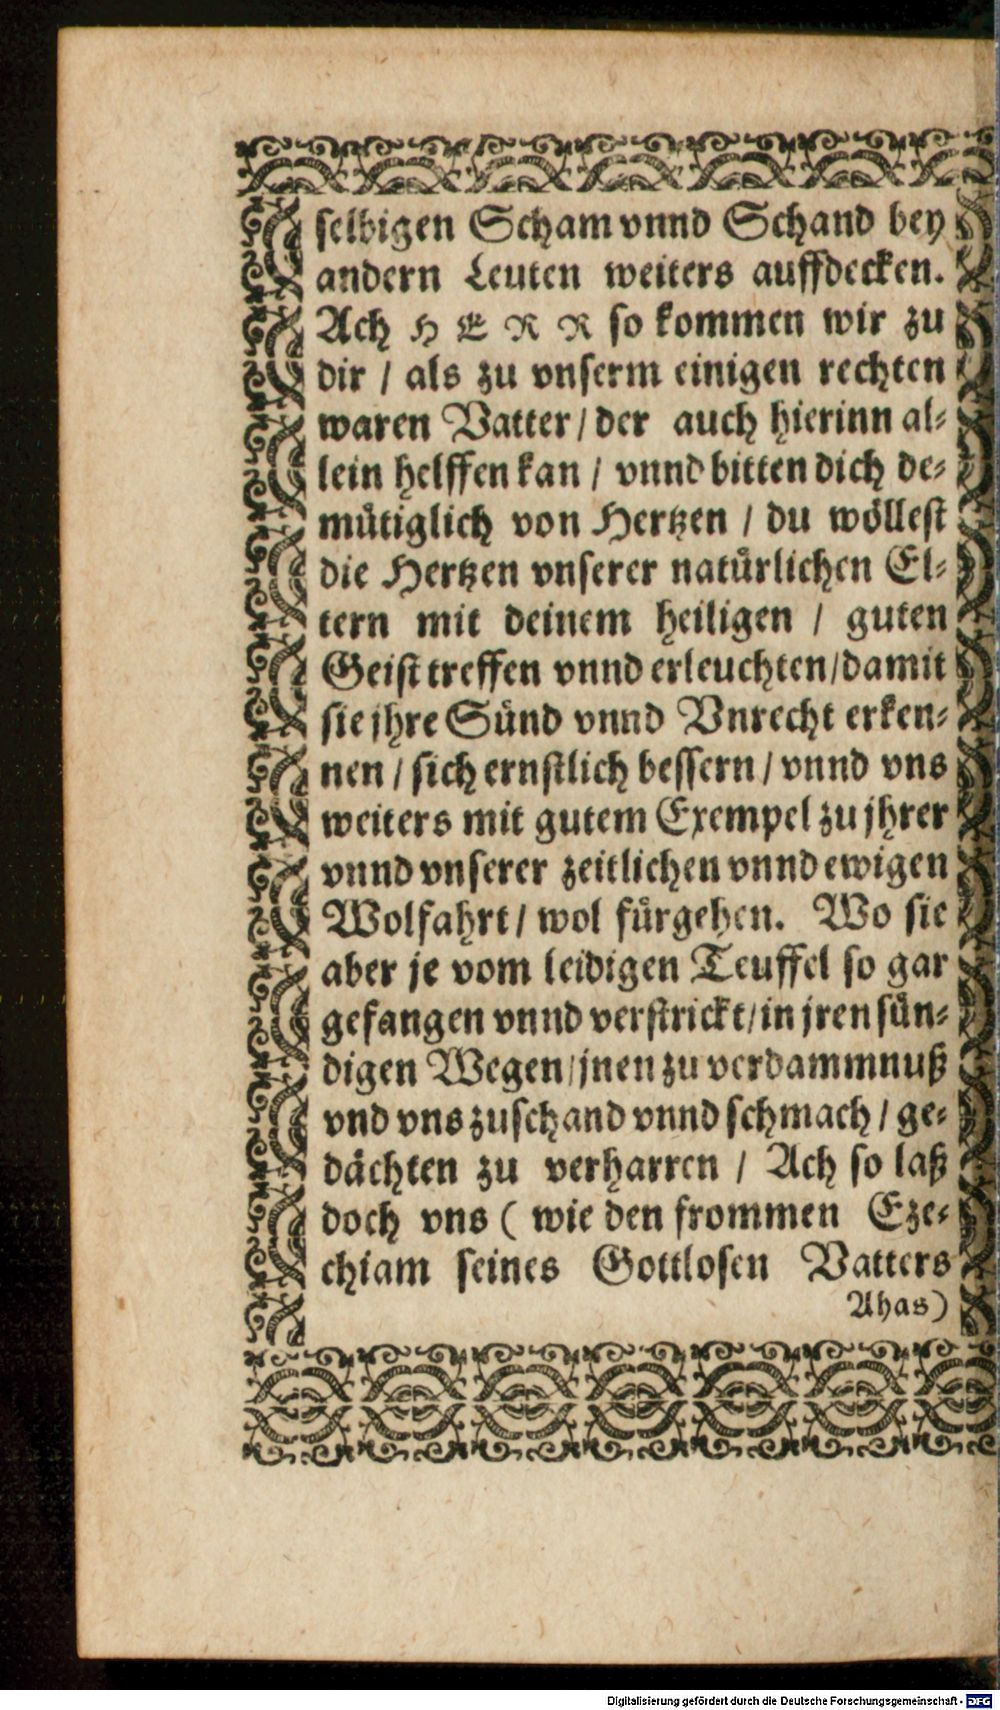 selbigen Scham vnnd Schand bey
andern Leuten weiters auffdecken.
Ach HERR so kommen wir zu
dir / als zu vnserm einigen rechten
waren Vatter / der auch hierinn al-
lein helffen kan / vnnd bitten dich de-
mütiglich von Hertzen / du wöllest
die Hertzen vnserer natürlichen El-
tern mit deinem heiligen / guten
Geist treffen vnnd erleuchten / damit
sie jhre Sünd vnnd Vnrecht erken-
nen / sich ernstlich bessern / vnnd vns
weiters mit gutem Exempel zu jhrer
vnnd vnserer zeitlichen vnnd ewigen
Wolfahrt / wol fürgehen. Wo sie
aber je vom leidigen Teuffel so gar
gefangen vnnd verstrickt / in jren sün-
digen Wegen / jnen zu verdammnuß
vnd vns zuschand vnnd schmach / ge-
dächten zu verharren / Ach so laß
doch vns ( wie den frommen Eze-
chiam seines Gottlosen Vatters
Ahas)
Digitalisierung gefördert durch die Deutsche Forschungsgemeinschaft - DFG